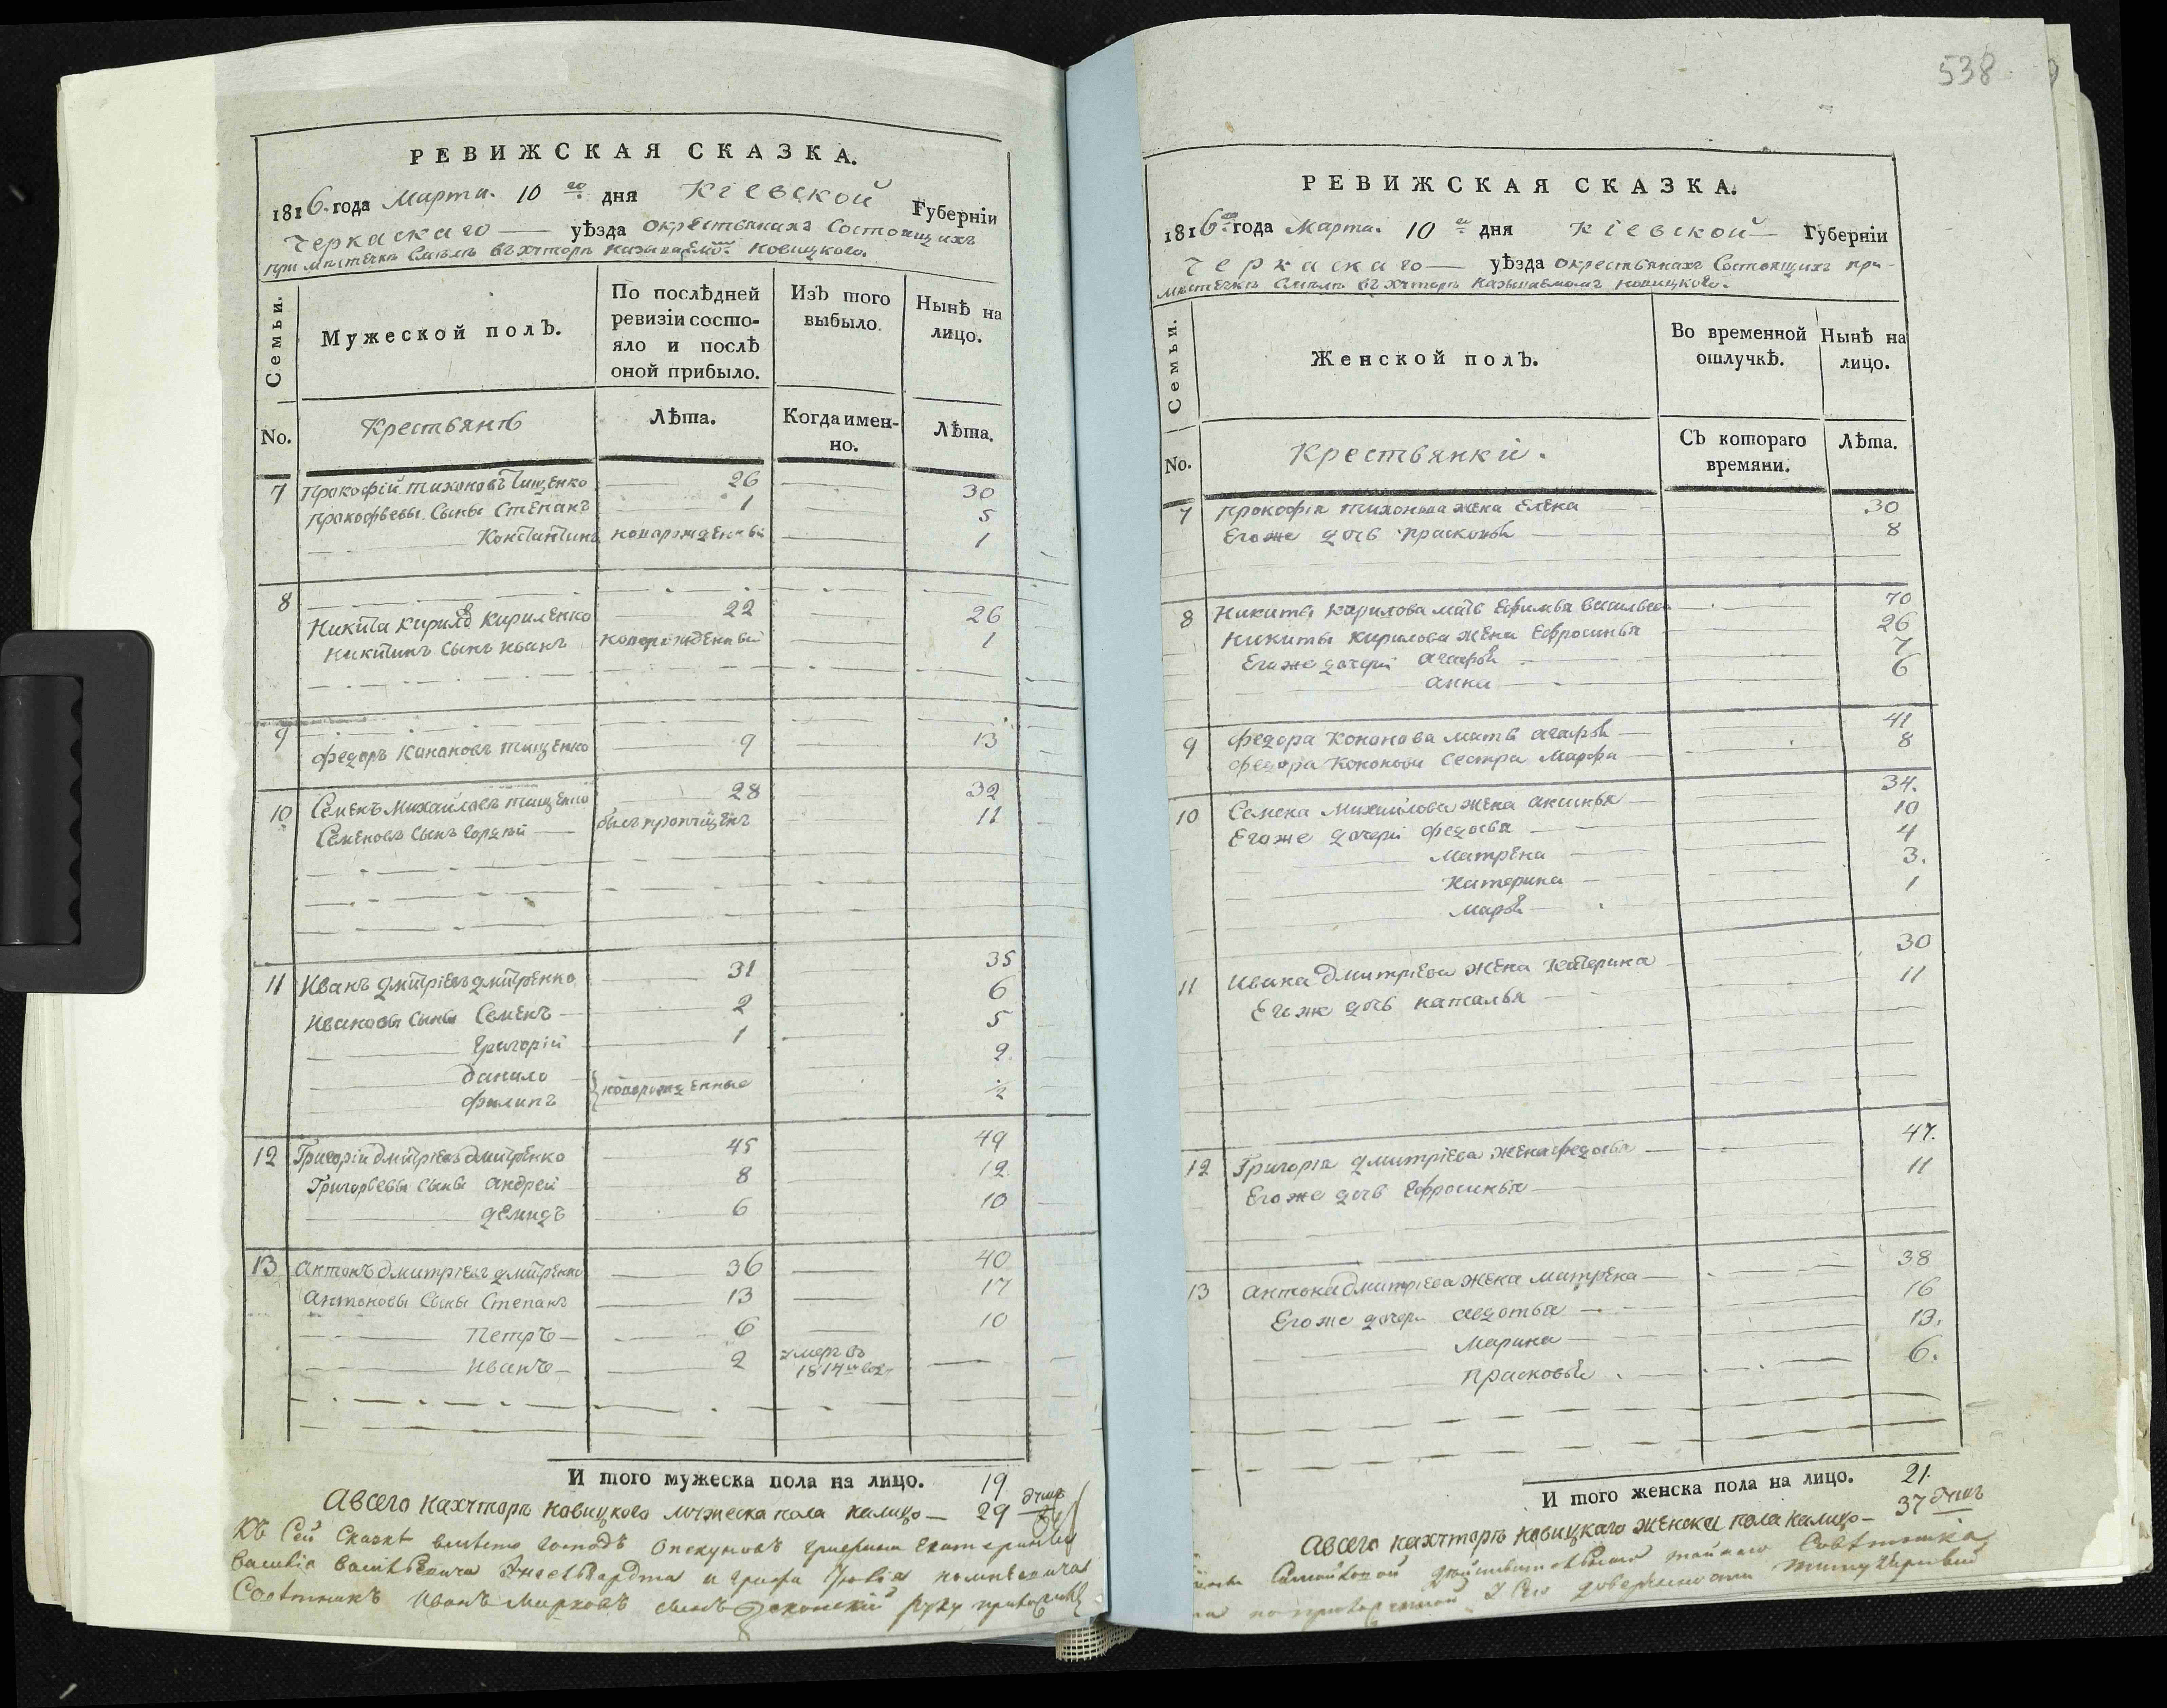 РЕВИЖСКАЯ СКАЗКА.
1816. года Марта. 10 го дня Кіевской Губерніи
Черкаскаго уѣзда окрестьянахъ Состоящихъ
при мѣстечкѣ Смѣлѣ въ хуторѣ называемомъ Новицкого.
Семьи.
Мужеской полъ.
По послѣдней ревизіи состояло и послѣ оной прибыло.
Изъ того выбыло.
Нынѣ на лицо.
No.
Крестьянѣ
Лѣта.
Когда именно.
Лѣта.
7 Прокофій тихоновъ Тищенко 26 30
Прокофьевы Сыны Степанъ 1 5
Константинъ новорожденный 1
8
Никита Кириловъ Кириленко 22 26
Никитинъ Сынъ Иванъ новорожденный 1
9
Федоръ Кононовъ тищенко 9 13
10 Семенъ Михайловъ тищенко 28 32
Семеновъ Сынъ Гордѣй былъ пропущенъ 11
11 Иванъ дмитріевъ дмитренко 31 35
Ивановы Сыны Семенъ 2 6
Григорій 1 5
данило 2
филипъ новорожденные ½
12 Григорій дмитріевъ дмитренко 45 49
Григорьевы Сыны андрей 8 12
демидъ 6 10
13 антонъ дмитріевъ дмитренко 36 40
антоновы Сыны Степанъ 13 17
Петръ 6 10
Иванъ 2 умеръ въ 1814м году
И того мужеска пола на лицо. 19
А всего на хуторѣ новицкого мужеска пола налицо 29 душъ
Къ Сей Сказкѣ вмѣсто Господъ Опекуновъ Графини Екатерины
Васильевича Энгельгардта и Графа Юлія
Совѣтникъ Иванъ Марковъ Сынъ руку приложилъ
538
РЕВИЖСКАЯ СКАЗКА.
1816го года Марта. 10 го дня Кіевской Губерніи
Черкаскаго уѣзда окрестьянахъ Состоящихъ при
мѣстечкѣ Смѣлѣ въ хуторѣ называемомъ новицкого.
Семьи.
Женской полъ.
Во временной отлучкѣ.
Нынѣ на лицо.
No.
Крестьянкі.
Съ котораго времяни.
Лѣта.
7 Прокофія тихонова жена Елена 30
Егоже дочь прасковья 8
8 Никиты Кирилова мать Ефимья Васильева 70
Никиты Кирилова жена Ефросинья 26
Егоже дочери агафья 7
анна 6
9 федора Кононова мать агафья 41
федора Кононова Сестра Марфа 8
10 Семена Михайлова жена аксинья 34.
Егоже дочери федосья 10
Матрена 4
Катерина 3.
марья 1
11 Ивана дмитріева жена Катерина 30
Егоже дочь наталья 11
12 Григорія дмитріева жена федосья 47.
Егоже дочь Ефросинья 11
13 антона дмитріева жена матрена 38
Егоже дочери авдотья 16
Марина 13.
Прасковья 6.
И того женска пола на лицо. 21.
А всего на хуторѣ новицкаго женска пола налицо 37 душъ
Самойловой дѣйствительнаго тайнаго Совѣтника
по доверенности титулярный